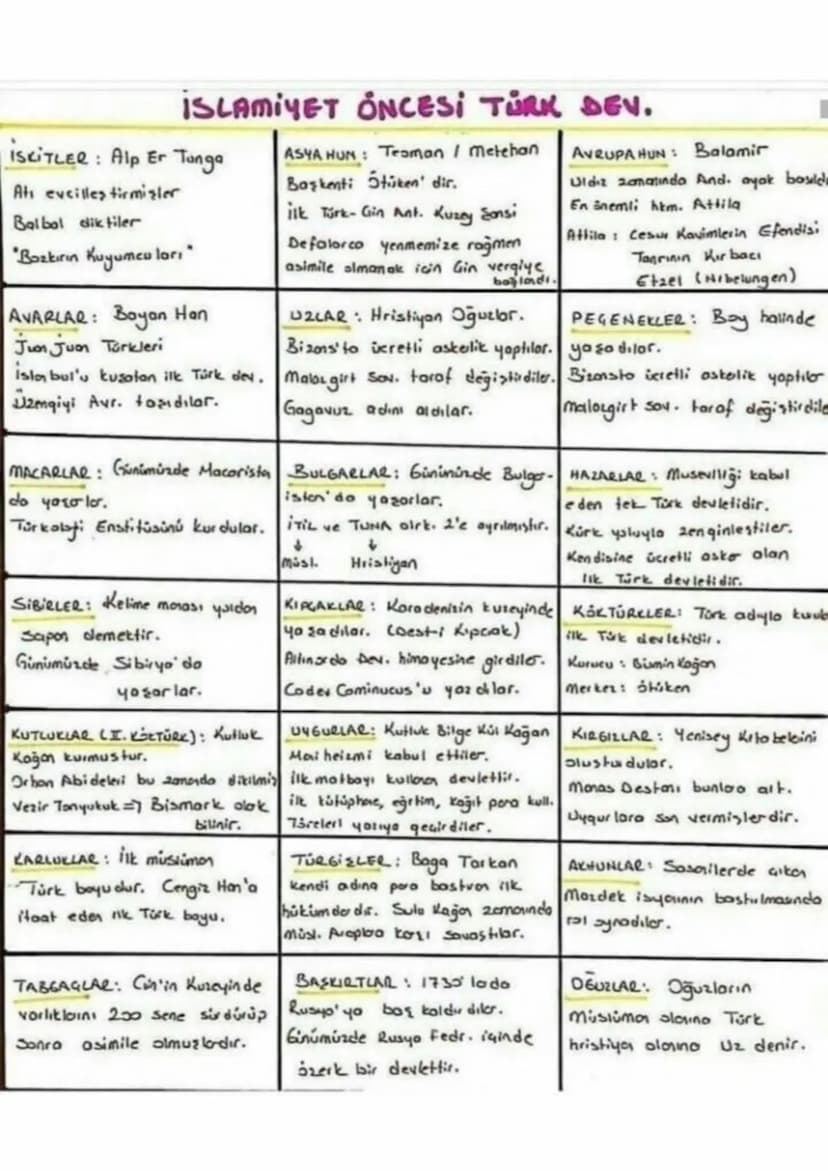 İSLAMİYET ÖNCESİ TÜRK DEV.
İSKİTLER : Alp Er Tunga
Atı evcilleştirmişler
Balbal diktiler
"Bozkırın Kuyumcuları"
ASYA HUN : Teoman / Metehan
Başkenti Ötüken'dir.
İlk Türk-Çin Ant. Kuzey Şansi
Defalarca yenmemize rağmen
asimile olmamak için Çin vergiye
bağlandı.
AVRUPA HUN : Balamir
Uldız zamanında And. ayak basıldı
En önemli hkm. Attila
Attila : Cesur Kavimlerin Efendisi
Tanrının Kırbacı
Etzel (Nibelungen)
AVARLAR : Bayan Han
Juan Juan Türkleri
İstanbul'u kuşatan ilk Türk dev.
Üzengiyi Avr. taşıdılar.
UZLAR : Hristiyan Oğuzlar.
Bizans'ta ücretli askerlik yaptılar.
Malazgirt Sav. taraf değiştirdiler.
Gagavuz adını aldılar.
PEÇENEKLER : Boy halinde
yaşadılar.
Bizansta ücretli askerlik yaptılar
Malazgirt sav. taraf değiştirdile
MACARLAR : Günümüzde Macarista
da yaşarlar.
Türkoloji Enstitüsünü kurdular.
BULGARLAR : Günümüzde Bulga-
istan'da yaşarlar.
İTİL ve TUNA olrk. 2'e ayrılmıştır.
↓ ↓
Müsl. Hristiyan
HAZARLAR : Museviliği kabul
eden tek Türk devletidir.
Kürk yoluyla zenginleştiler.
Kendisine ücretli asker alan
ilk Türk devletidir.
SİBİRLER : Kelime manası yoldan
sapan demektir.
Günümüzde Sibirya'da
yaşarlar.
KIPÇAKLAR : Karadenizin kuzeyinde
yaşadılar. (Deşt-i Kıpçak)
Altınorda Dev. himayesine girdiler.
Codex Cominucus'u yazdılar.
KÖKTÜRKLER : Türk adıyla kurul
ilk Türk devletidir.
Kurucu : Bumin Kağan
Merkez : Ötüken
KUTLUKLAR (II. KÖKTÜRK) : Kutluk
Kağan kurmuştur.
Orhan Abideleri bu zamanda dikilmiş
Vezir Tonyukuk => Bismark olak
bilinir.
UYGURLAR : Kutluk Bilge Kül Kağan
Maniheizmi kabul ettiler.
İlk matbayı kullanan devlettir.
İlk kütüphane, eğitim, kağıt para kull.
Töreleri yazıya geçirdiler.
KIRGIZLAR : Yenisey Kitabelerini
oluşturdular.
Manas Destanı bunlara ait.
Uygurlara son vermişlerdir.
KARLUKLAR : İlk müslüman
Türk boyudur. Cengiz Han'a
itaat eden ilk Türk boyu.
TÜRGİŞLER : Baga Tarkan
Kendi adına para bastıran ilk
hükümdardır. Sulu Kağan zamanında
Müsl. Araplara karşı savaştılar.
AKHUNLAR : Sasanilerde çıkan
Mazdek isyanının bastırılmasında
rol oynadılar.
TABGAÇLAR : Çin'in Kuzeyinde
varlıklarını 200 sene sürdürüp
sonra asimile olmuşlardır.
BAŞKIRTLAR : 1730'larda
Rusya'ya baş kaldırdılar.
Günümüzde Rusya Fedr. içinde
özerk bir devlettir.
OĞUZLAR : Oğuzların
Müslüman olanına Türk
hristiyan olanına Uz denir.